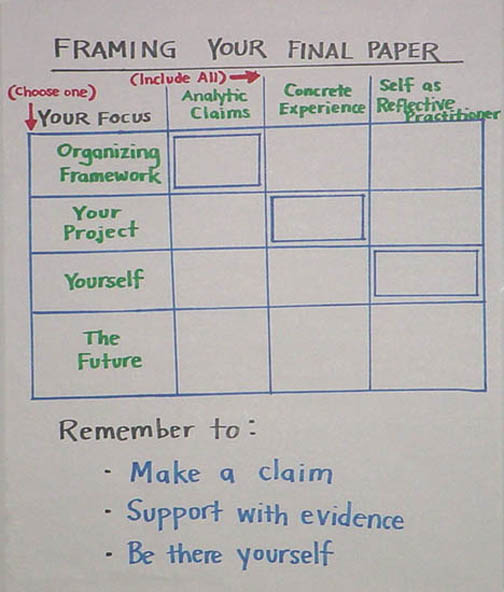 FRAMING YOUR FINAL PAPER
(Include All)
(Choose one)
YOUR FOCUS
Analytic
Claims
Concrete
Experience
Self as
Reflective
Practitioner
Organizing
Framework
Your
Project
Yourself
The
Future
Remember to:
· Make a claim
· Support with evidence
· Be there yourself